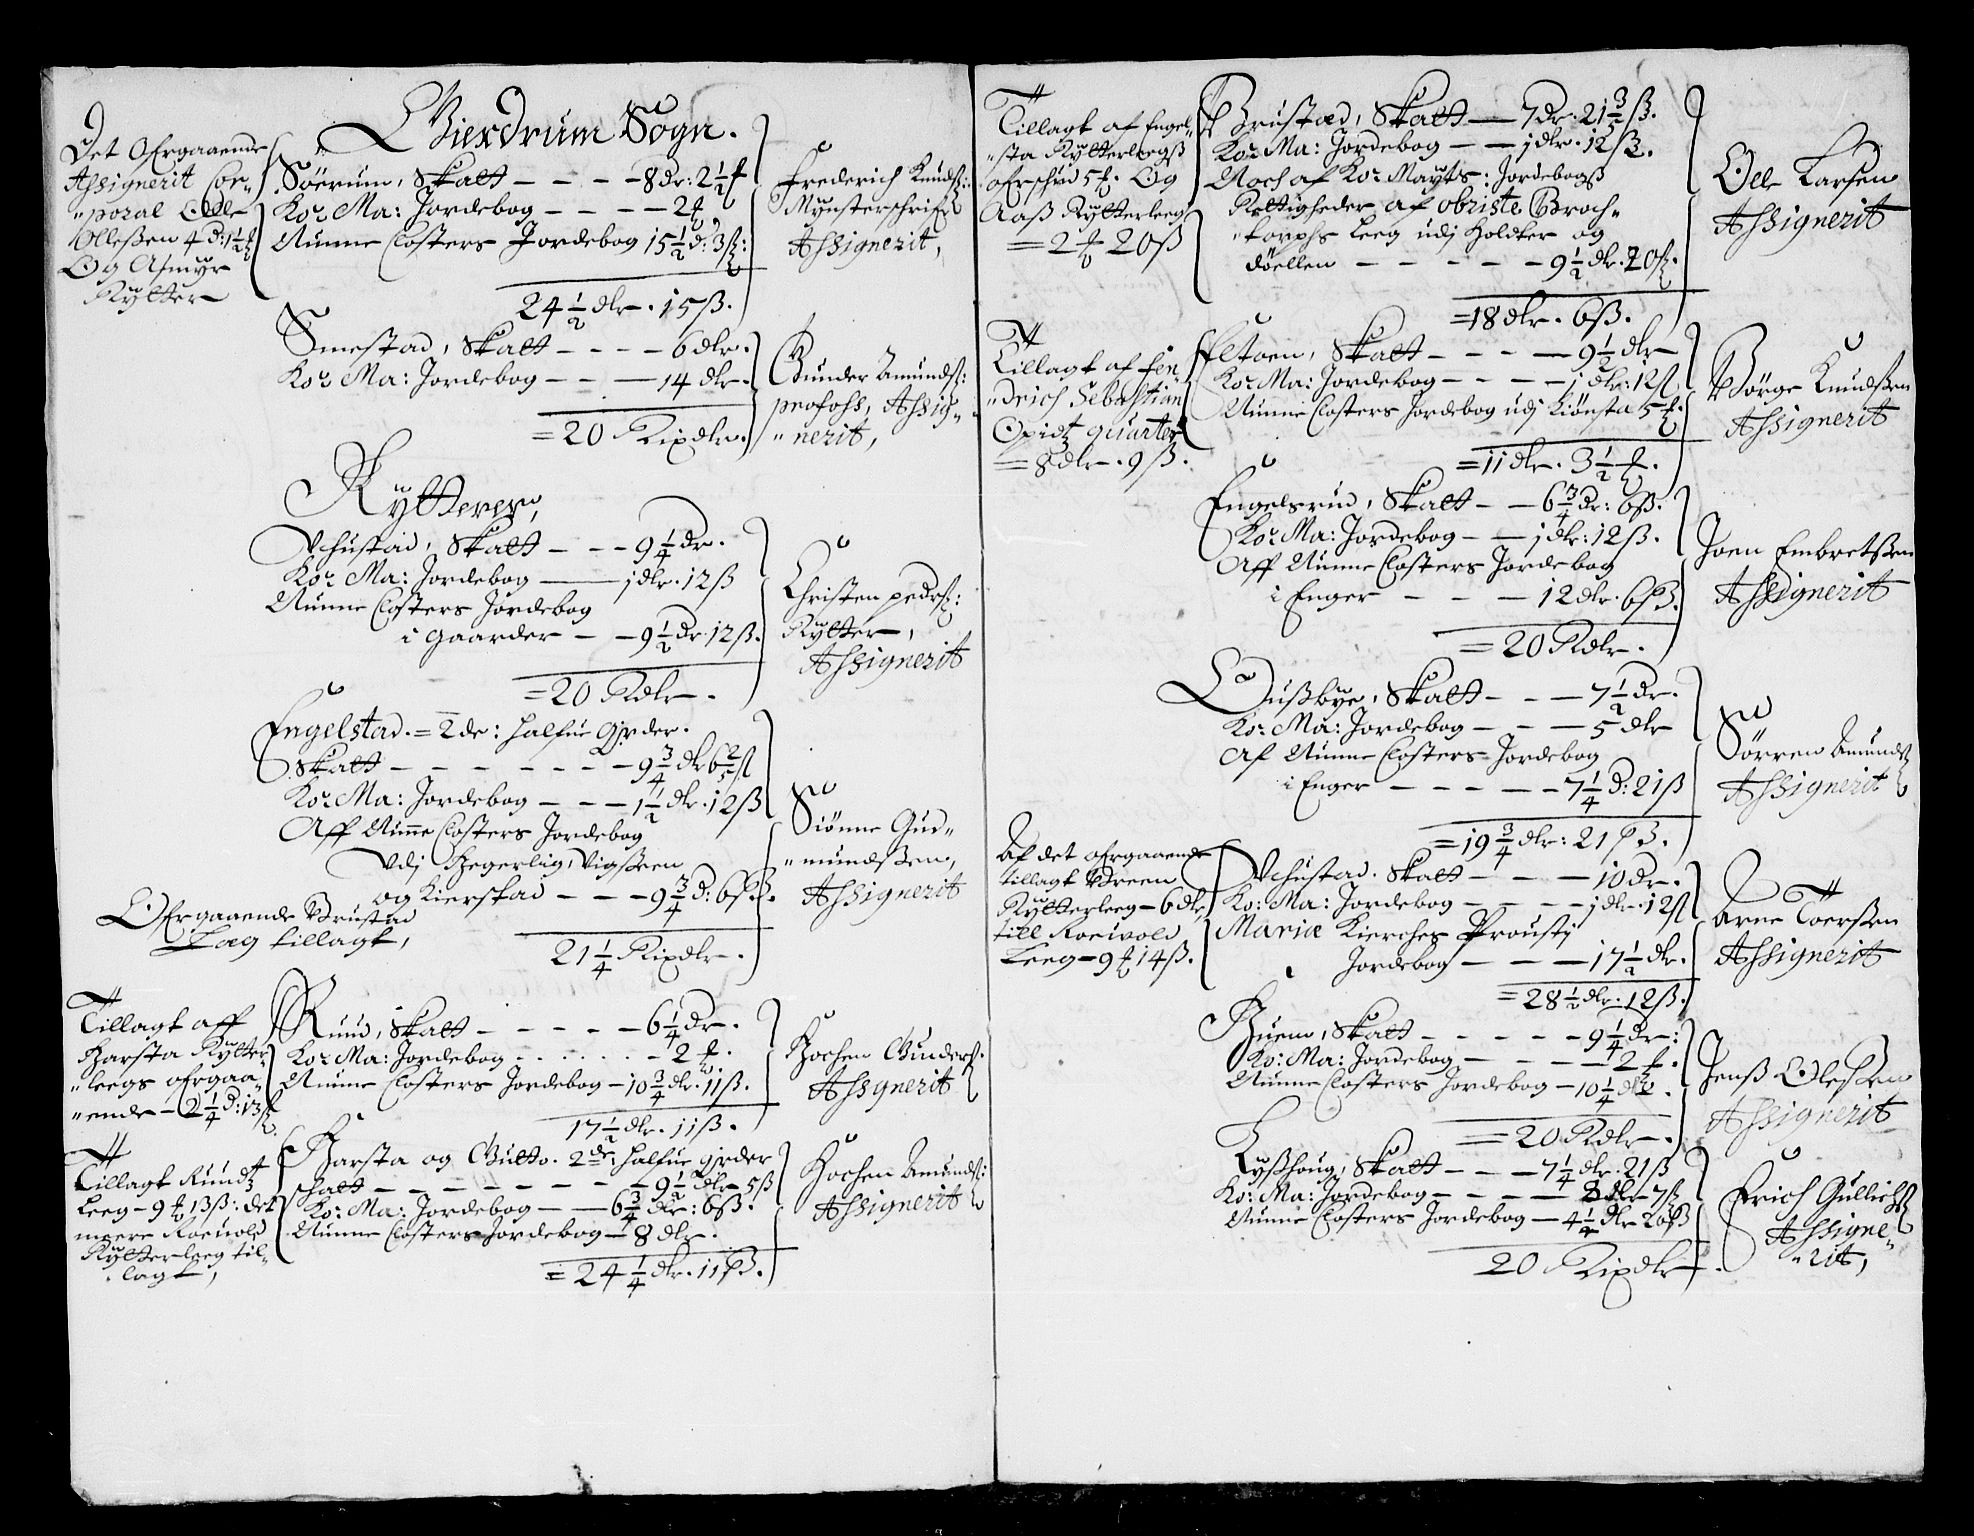 Gierdrum Sogn.
Det Ofrgaaende
Assignerit Cor-
"poral Olle
Ollesen 4 d: 1½
Og Asmyr
Rytter
Söerum, Skatt - - - - 8 dr: 2½
Ko: Ma: Jordebog - - - - 2
Nunne Closters Jordebog 15½ d: 3ß:
24½ dlr. 15ß.
Frederich Knuds:
Mynsterschrifr
Assignerit,
Smestad, Skatt - - - - 6 dlr.
Ko: Ma: Jordebog - - - 14 dlr.
= 20 Rixdlr.
Gunder Amunds:
profoss, Assig-
"nerit,
Rytterer,
Schustad, Skatt - - - 9¼ Dr.
Ko: Ma: Jordebog - 1 dlr. 12ß
Nunne Closters Jordebog
i Gaarder - - 9½ Dr. 12ß.
= 20 Rdlr.
Christen peders:
Rytter,
Assignerit
Engelstad. = 2 de: halfue Gjrder.
Skatt - - - - - - - 9¾ dlr 6⅖ ß
Ko: Ma: Jordebog - - - 1½ dlr. 12ß
Aff Nunne Closters Jordebog
Udj Hegerlig, Vigsteen
og Kierstad - - - 9¾ d: 6ß.
21¼ Rixdlr.
Siönne Gud-
"mundsen,
Assignerit
Ofrgaaende Brustad
Lag tillagt,
Tillagt aff
Harsta Rytter
"leegs ofrgaa-
"ende - 2¼ d: 13ß
Ruud, Skatt - - - - - 6¼ dr.
Ko: Ma: Jordebog - - - - - 2
Nunne Closters Jordebog - 10¾ dlr. 11ß.
17½ dlr. 11ß.
Jochen Gunders.
Assignerit
Tillagt Ruudtz
Leeg - 9 13ß: det
meere Roeuold
Rytterleeg til-
lagt,
Harsta og Gulto. 2 de, halfue gjrder
schatt - - - - - - - - 9½ dlr - 5ß
Ko: Ma: Jordebog - - 6¾ dr: 6ß.
Nunne Closters Jordebog - 8 dlr.
= 24¼ dlr. 11ß.
Jochen Amunds:
Assignerit
Tillagt af Engel-
"sta Rytterleegs
ofrschud 5 . Og
Aas Rytterleeg
= 2 20ß
Brustad, Skatt - 7 dr. 21⅗ ß.
Ko: Ma: Jordebog - - 1 dlr. 12ß.
Noch af Ko: Mayts: Jordebogs
Rettigheder af obriste Broch-
"torphs Leeg udj Holdter og
döellen - - - - - - 9½ dlr. 20ß.
= 18 dlr. 6ß.
Olle Larsen
Assignerit
Tillagt af Hen
"drich Sebastian
Opitz quarter
= 8 dlr. 9ß.
Eltoen, Skatt - - - - 9½ dlr
Ko: Ma: Jordebog - - - - 1 dlr: 12ß
Nunne Closters Jordebog udj Kiönsta 5
= 11 dlr. 3½
Börge Knudsen
Assignerit
Engelsrud, Skatt - - 6¾ dr: 6ß.
Ko: Ma: Jordebog - - 1 dlr: 12ß.
Aff Nunne Closters Jordebog
i Enger - - - - 12 dlr. 6ß.
= 20 Rdlr.
Joen Embretsen
Assignerit
Gussbye, Skatt - - - 7½ dr.
Ko: Ma: Jordebog - - - 5 dlr
Af Nunne Closters Jordebog
i Enger - - - - - - 7¼ d: 21ß
= 19¾ dlr: 21ß.
Sörren Amunds
Assignerit
Af det ofrgaaende
tillagt Breen
Rytterleeg - 6 dlr
till Roeuold
Leeg - 9 14ß.
Schustad. Skatt - - - 10 dr.
Ko: Ma: Jordebog - - - - 1 dlr. 12ß
Mariæ Kierches Prousti
Jordebog - - - - 17½ dr.
= 28½ dlr. 12ß.
Arne Toersen
Assignerit
Huem, Skatt - - - - - 9¼ dr:
Ko: Ma: Jordebog - - - - 2
Nunne Closters Jordebog - 10¼ dlr.
= 20 Rdlr.
Jens Olesen
Assignerit
Lysshoug, Skatt - - - 7¼ dlr. 21ß
Ko: Ma: Jordebog - - - - 8 dlr 7ß
Nunne Closters Jordebog - 4½ dlr 20ß
20 Rixdlr.
Erich Gullichs
Assigne-
"rit,